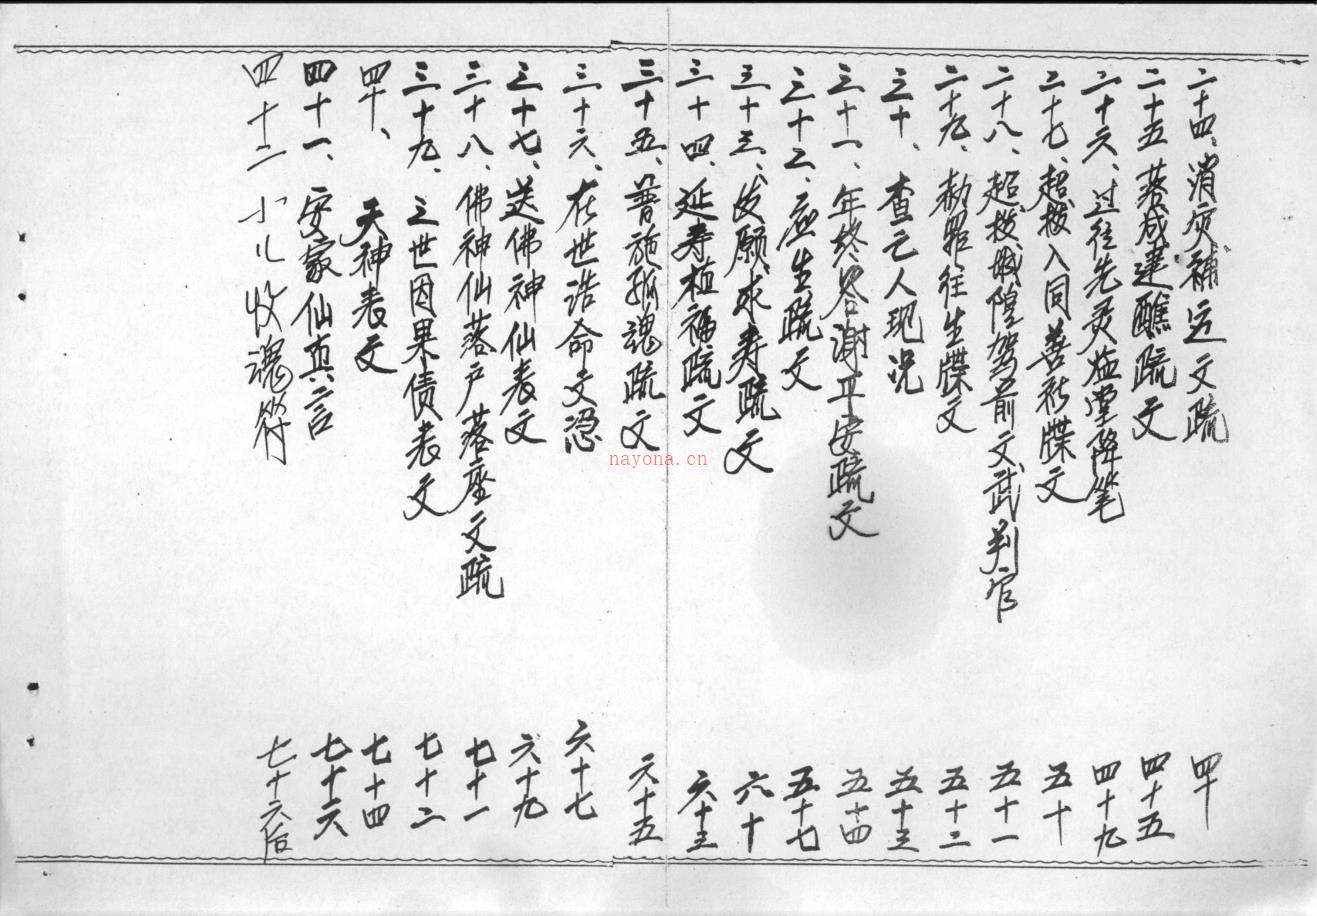 二十四、消灾补运文疏 四十
二十五 落成建醮疏文 四十五
二十六、过往先灵临堂降笔 四十九
二十七、超拔入同善社牒文 五十
二十八、超拔城隍驾前文武判官 五十一
二十九、赦罪往生牒文 五十二
三十、查亡人现况 五十三
三十一、年终答谢平安疏文 五十四
三十二、应生疏文 五十七
三十三、发愿求寿疏文 六十
三十四、延寿植福疏文 六十三
三十五、普施孤魂疏文 六十五
三十六、在世诰命文凭 六十七
三十七、送佛神仙表文 六十九
三十八、佛神仙落户落座文疏 七十一
三十九、三世因果债表文 七十二
四十、天神表文 七十四
四十一、安家仙真言 七十六
四十二 小儿收魂符 七十六后
nayona.cn